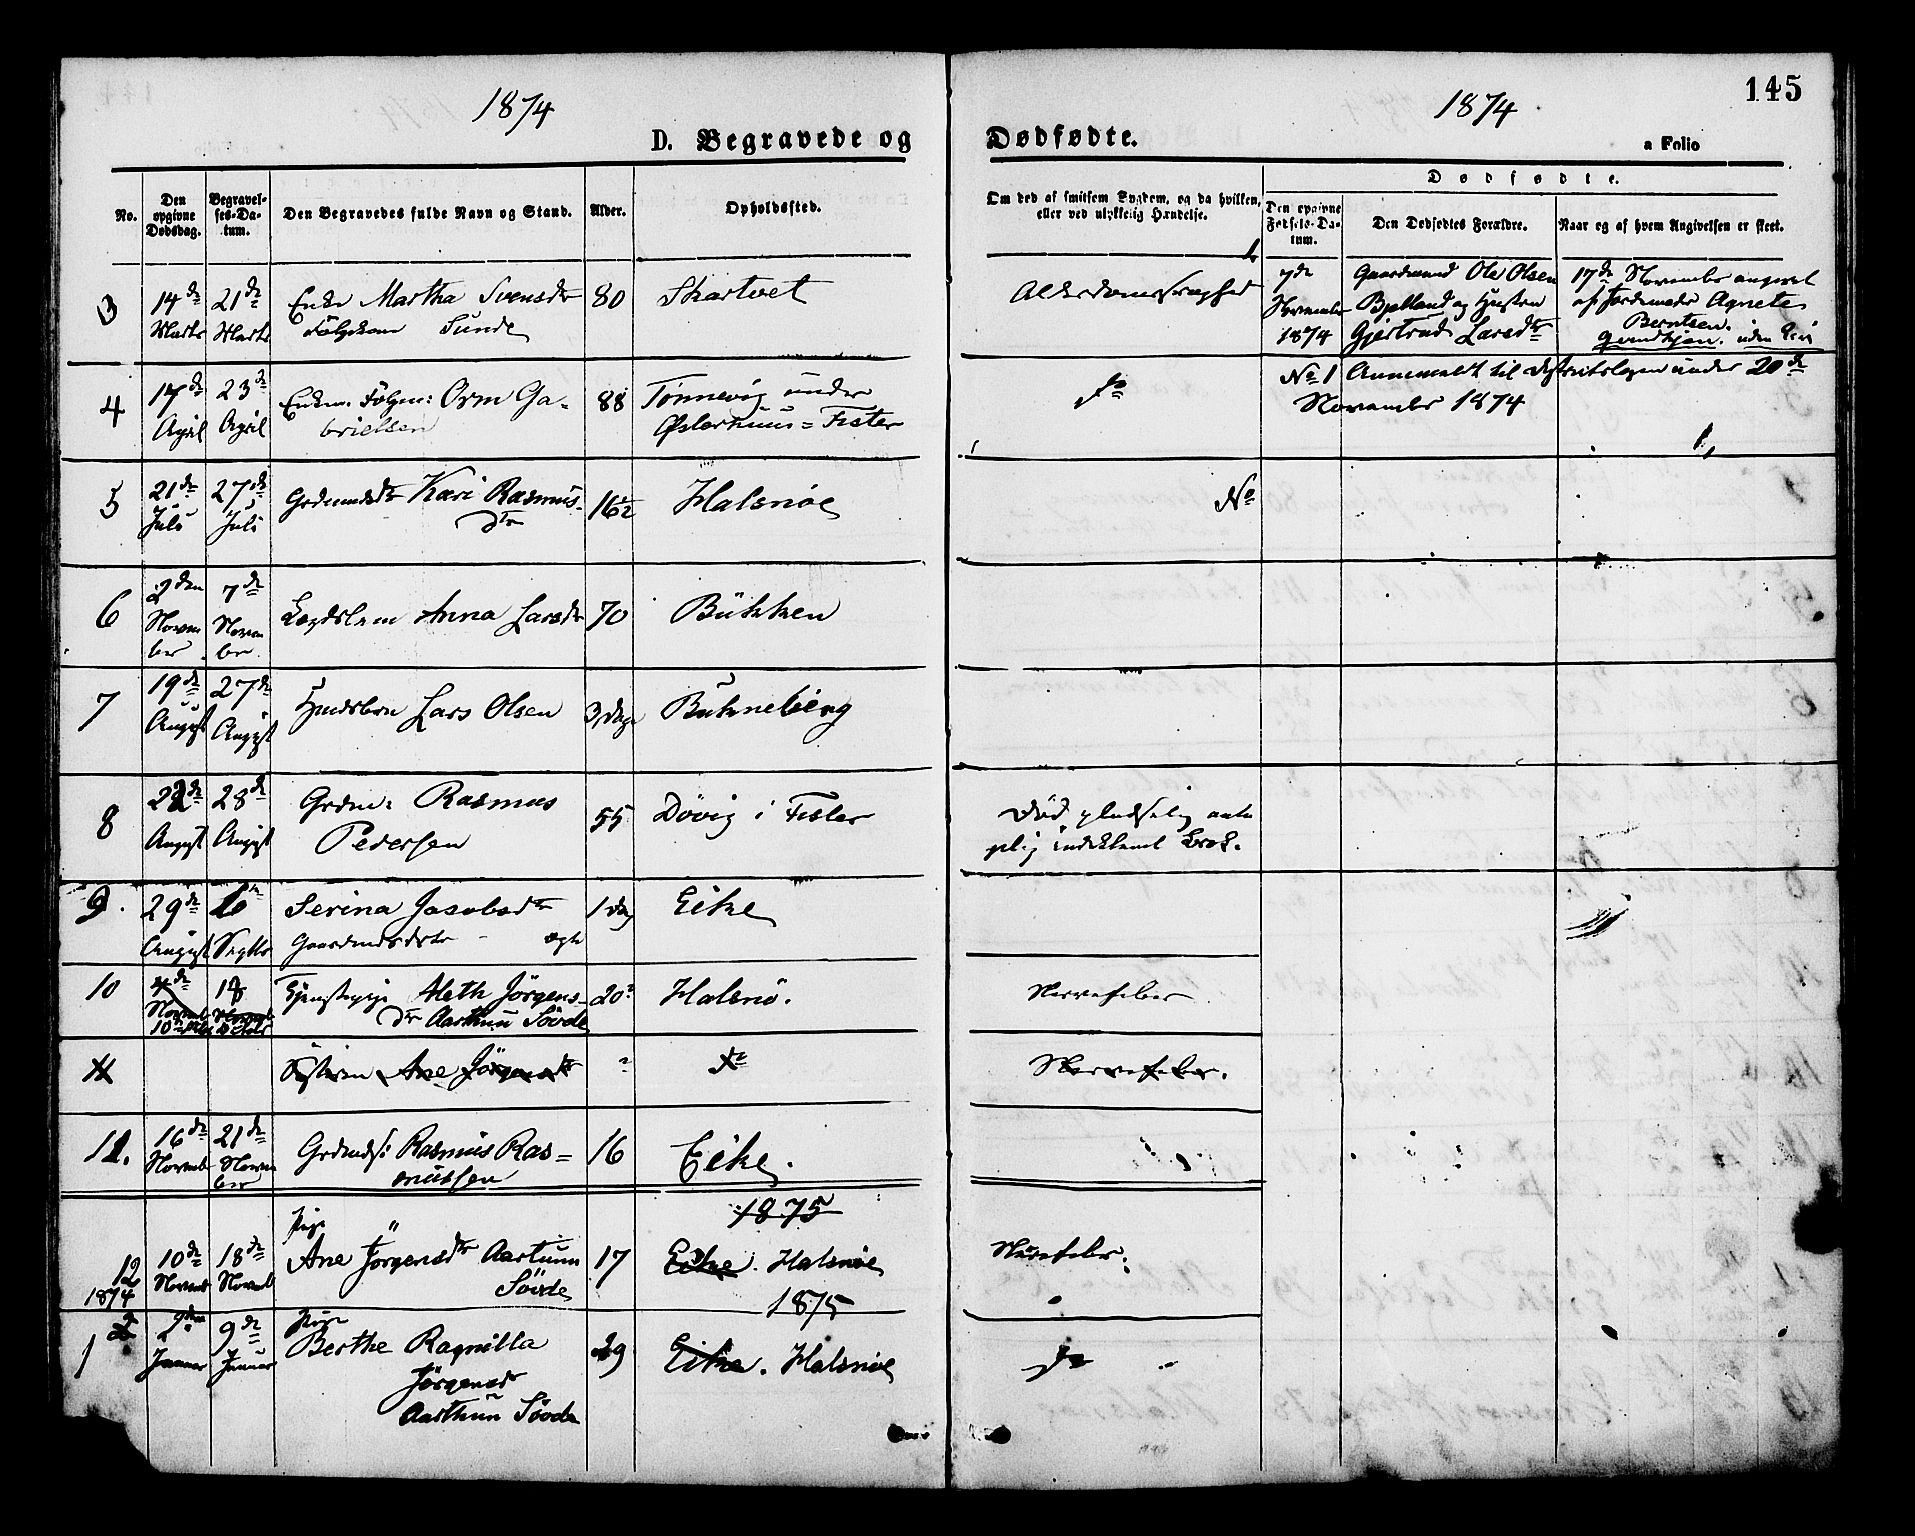 1874
1874
145
D. Begravede og
Dødfødte.
a Folio
No.
Den opgivne Dødsdag.
Begravelses-Datum.
Den Begravedes fulde Navn og Stand.
Alder.
Opholdssted.
Om død af smitsom Sygdom, og da hvilken,
eller ved ulykkelig Hændelse.
Dødfødte.
Den opgivne Fødsels-Datum.
Den Dødfødtes Forældre.
Naar og af hvem Angivelsen er skeet.
3
14de Marts
21de Marts
Enke Martha Svensdtr
Sunde
80
Skartvet
Alderdomssvaghed
7de November 1874
Gaardmand Ole Olsen
Bjelland og Hustru
Gjertrud Larsdtr
17de November angivet
af Jordemoder Agnete
Berntsen.
4
17de April
23de April
Enkem. Følgm: Orm Ga-
brielsen
88
Tønnevig under
Østerhuus = Fister
Do
No 1 Anmeldt til Distriktslægen under 20de
November 1874
5
21de Juli
27de Juli
Grdmandsdtr Kari Rasmus-
dtr
16½
Halsnøe
No
6
2den November
7de November
Lægdslem Anna Larsdtr
70
Bükken
7
19de August
27de August
Lars Olsen
3 Dage
Bukneberg
8
22de August
28de August
Grdm: Rasmus
Pedersen
55
Døvig i Fister
Død pludselig
indeklemt Brok.
9.
29de August
6te Septbr
Serina Jacobsdtr
Gaardmandsdtr - ægte
1 dag
Eike
10
4de Novemb
18
Tjenestepige Aleth Jörgens-
dtr Aarthuu Søvde
20
Halsnö.
Nervefeber
11
Søsteren Ane Jörgensdtr
"
Do
Nervefeber.
11.
16de Novemb
21de November
Grdmds: Rasmus Ras=
mussen
16
Eike.
1875
12
1874
10de Novemb
18de Novemb
Pige
Ane Jörgensdtr Aartuun
Søvde
17
Eike. Halsnøe
Nervefeber.
1875
1
2
2den Januar
9de Januar
Pige
Berthe Ragnilla
Jörgensdr
Aarthun Søvde
29
Eike. Halsnøe
Do